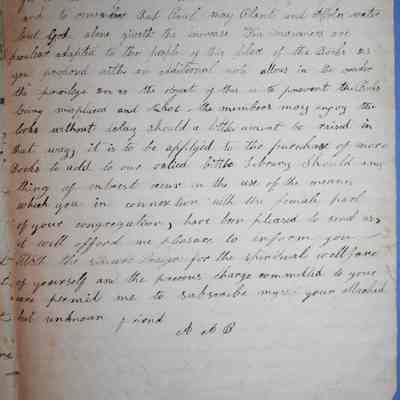 and to remember that Paul may Plant and Apolu water
but God alone giveth the increase This
peculiar adapted to the people of this place of the Books as
you proposed with an additional note allows in the
the privilege on as the object of this is to prevent the Books
being misplaced and that the members may enjoy the
loks without delay should a little amount be raised in
that way, it is to be applyed to the purchase of more
Books to add to our valued little Library should any
thing of interest occur in the use of the means
which you in connection with the female part
of your congregation, have been pleased to send us,
it will afford me pleasure to inform you
With the sincere desire for the spiritual wellfare
of yourself and the precious charge committed to your
care permit me to subscribe myself your attached
but unknown friend
A A B